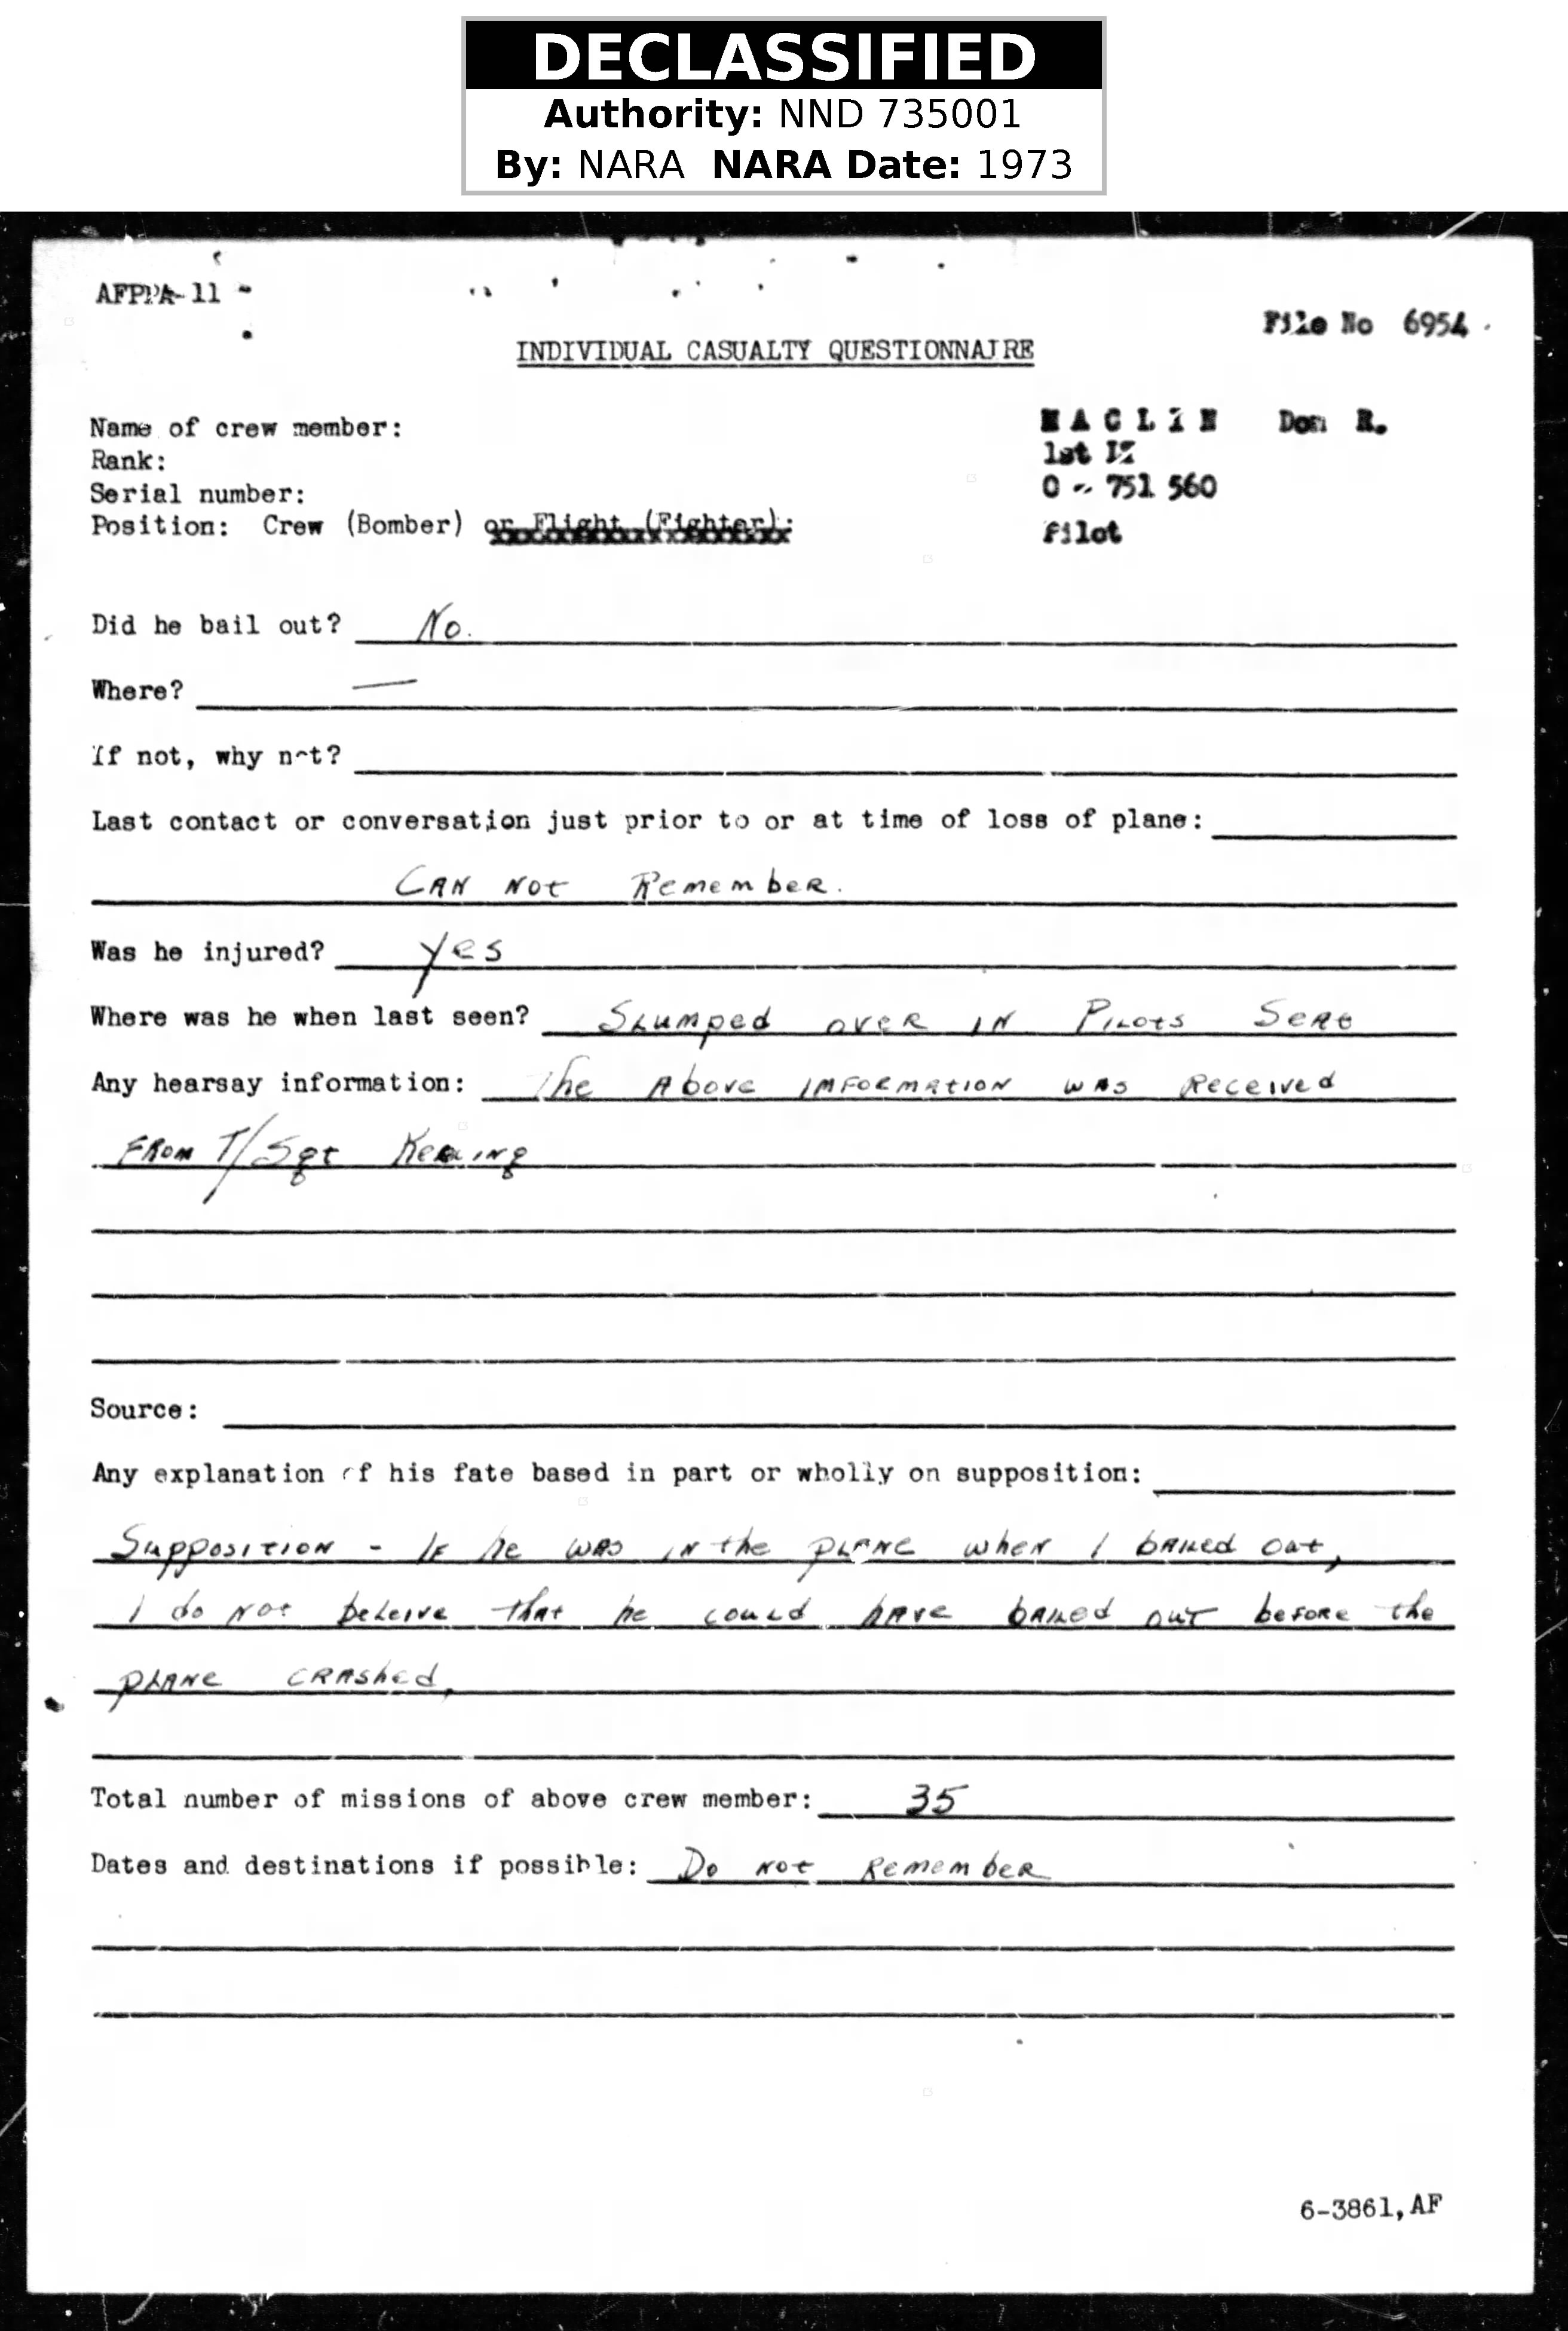 DECLASSIFIED
Authority: NND 735001
By: NARA NARA Date: 1973
AFPPA-11
File No 6954
INDIVIDUAL CASUALTY QUESTIONNAIRE
Name of crew member: Don R.
Rank: 1st Lt
Serial number: 0 - 751 560
Position: Crew (Bomber) or Flight (Fighter): Pilot
Did he bail out? No.
Where? —
If not, why not?
Last contact or conversation just prior to or at time of loss of plane:
CAN NOT Remember.
Was he injured? yes
Where was he when last seen? Slumped over in Pilots Seat
Any hearsay information: The Above INFORMATION was Received
FROM T/Sgt
Source:
Any explanation of his fate based in part or wholly on supposition:
Supposition - If he was in the plane when I bailed out,
I do not beleive that he could have bailed out before the
plane crashed.
Total number of missions of above crew member: 35
Dates and destinations if possible: Do not Remember
6-3861, AF